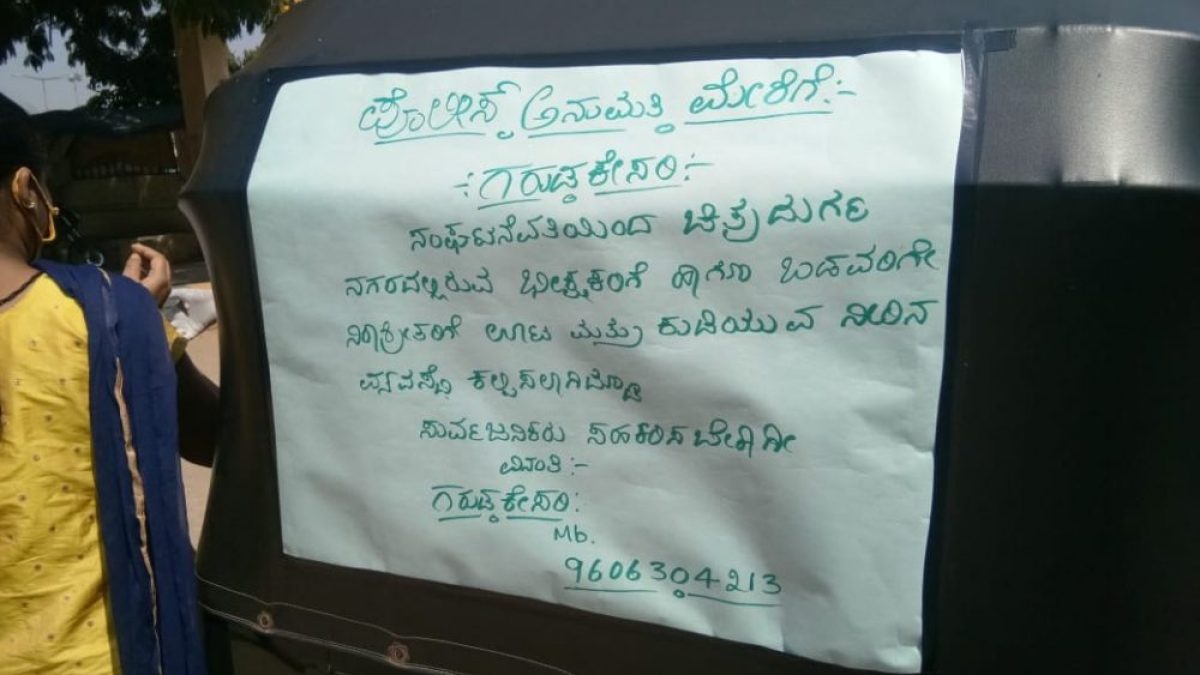 ಪೊಲೀಸ್ ಅನುಮತಿ ಮೇರೆಗೆ:-
-:ಗರುಡಕೇಸರಿ:-
ಸಂಘಟನೆವತಿಯಿಂದ ಚಿತ್ರದುರ್ಗ
ನಗರದಲ್ಲಿರುವ ಭೀಕ್ಷುಕರಿಗೆ ಹಾಗೂ ಬಡವರಿಗೇ
ನಿರಾಶ್ರೀತರಿಗೆ ಊಟ ಮತ್ತು ಕುಡಿಯುವ ನೀರಿನ
ವ್ಯವಸ್ಥೆ ಕಲ್ಪಿಸಲಾಗಿದ್ದು
ಸಾರ್ವಜನಿಕರು ಸಹಕರಿಸಬೇಕಾಗೀ
ವಿನಂತಿ:-
ಗರುಡಕೇಸರಿ:
Mb.
9606304213